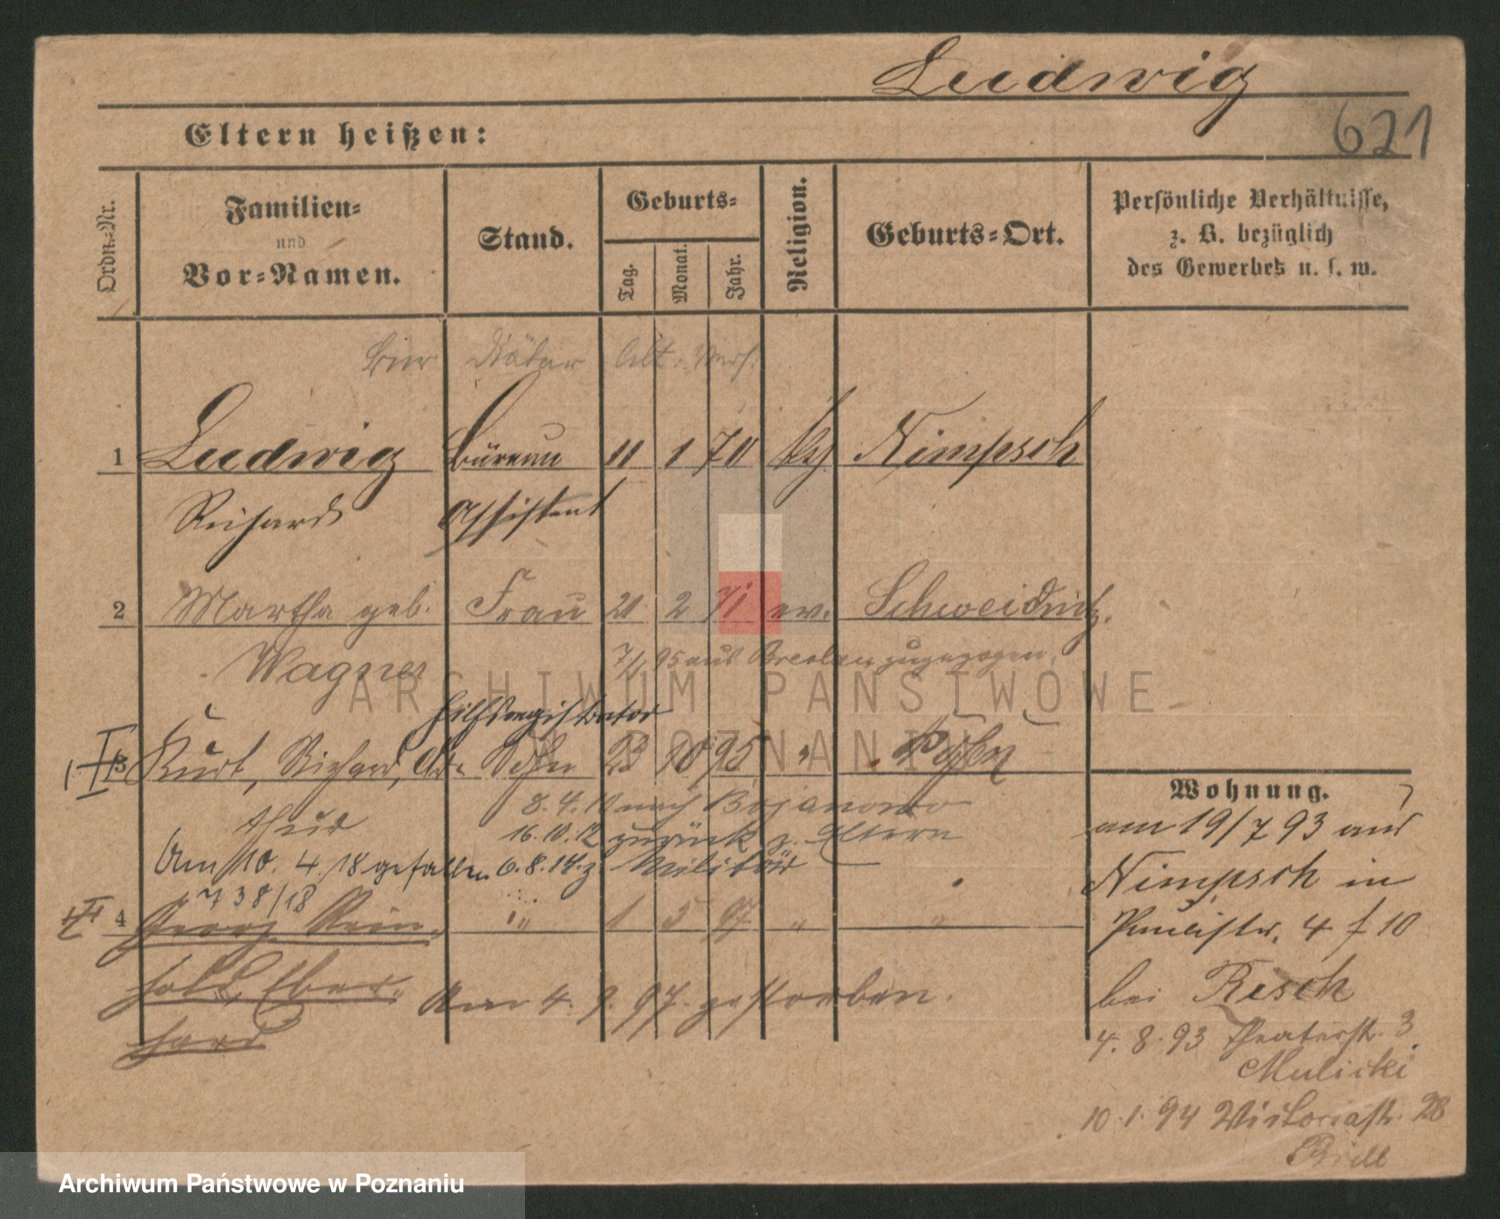 Ludwig
621
Eltern heißen:
Ordn.-Nr.
Familien-
und
Vor-Namen.
Stand.
Geburts-
Tag.
Monat.
Jahr.
Religion.
Geburts-Ort.
Persönliche Verhältnisse,
z. B. bezüglich
des Gewerbes u. s. w.
Bür Diätar
1 Ludwig Büreau 11 1 70 Nimpsch
Richard Assistent
2 Martha geb. Frau 20 2 71 ev. Schweidnitz.
Wagner 7/1 95 aus Breslau zugezogen.
Hilfsregistrator
I 3 Kurt, Richard, Ar- Sohn 23 10 95 " Posen
thur 8.4.10 nach Bojanowo
16.10.12 zurück z. Eltern
Am 10. 4. 18 gefallen 6.8.14 z Militär
738/18
II 4 Georg Rein- " 1 5 97 " "
hold, Eber-
hard
Am 4. 9. 97. gestorben.
Wohnung.
am 19/7 93 aus
Nimpsch in
Paulistr. 4 f 10
bei Resch
4. 8. 93 Theaterstr. 3.
Mulicki
10. 1. 94 Victoriastr. 28
Brill
ARCHIWUM PAŃSTWOWE
W POZNANIU
Archiwum Państwowe w Poznaniu